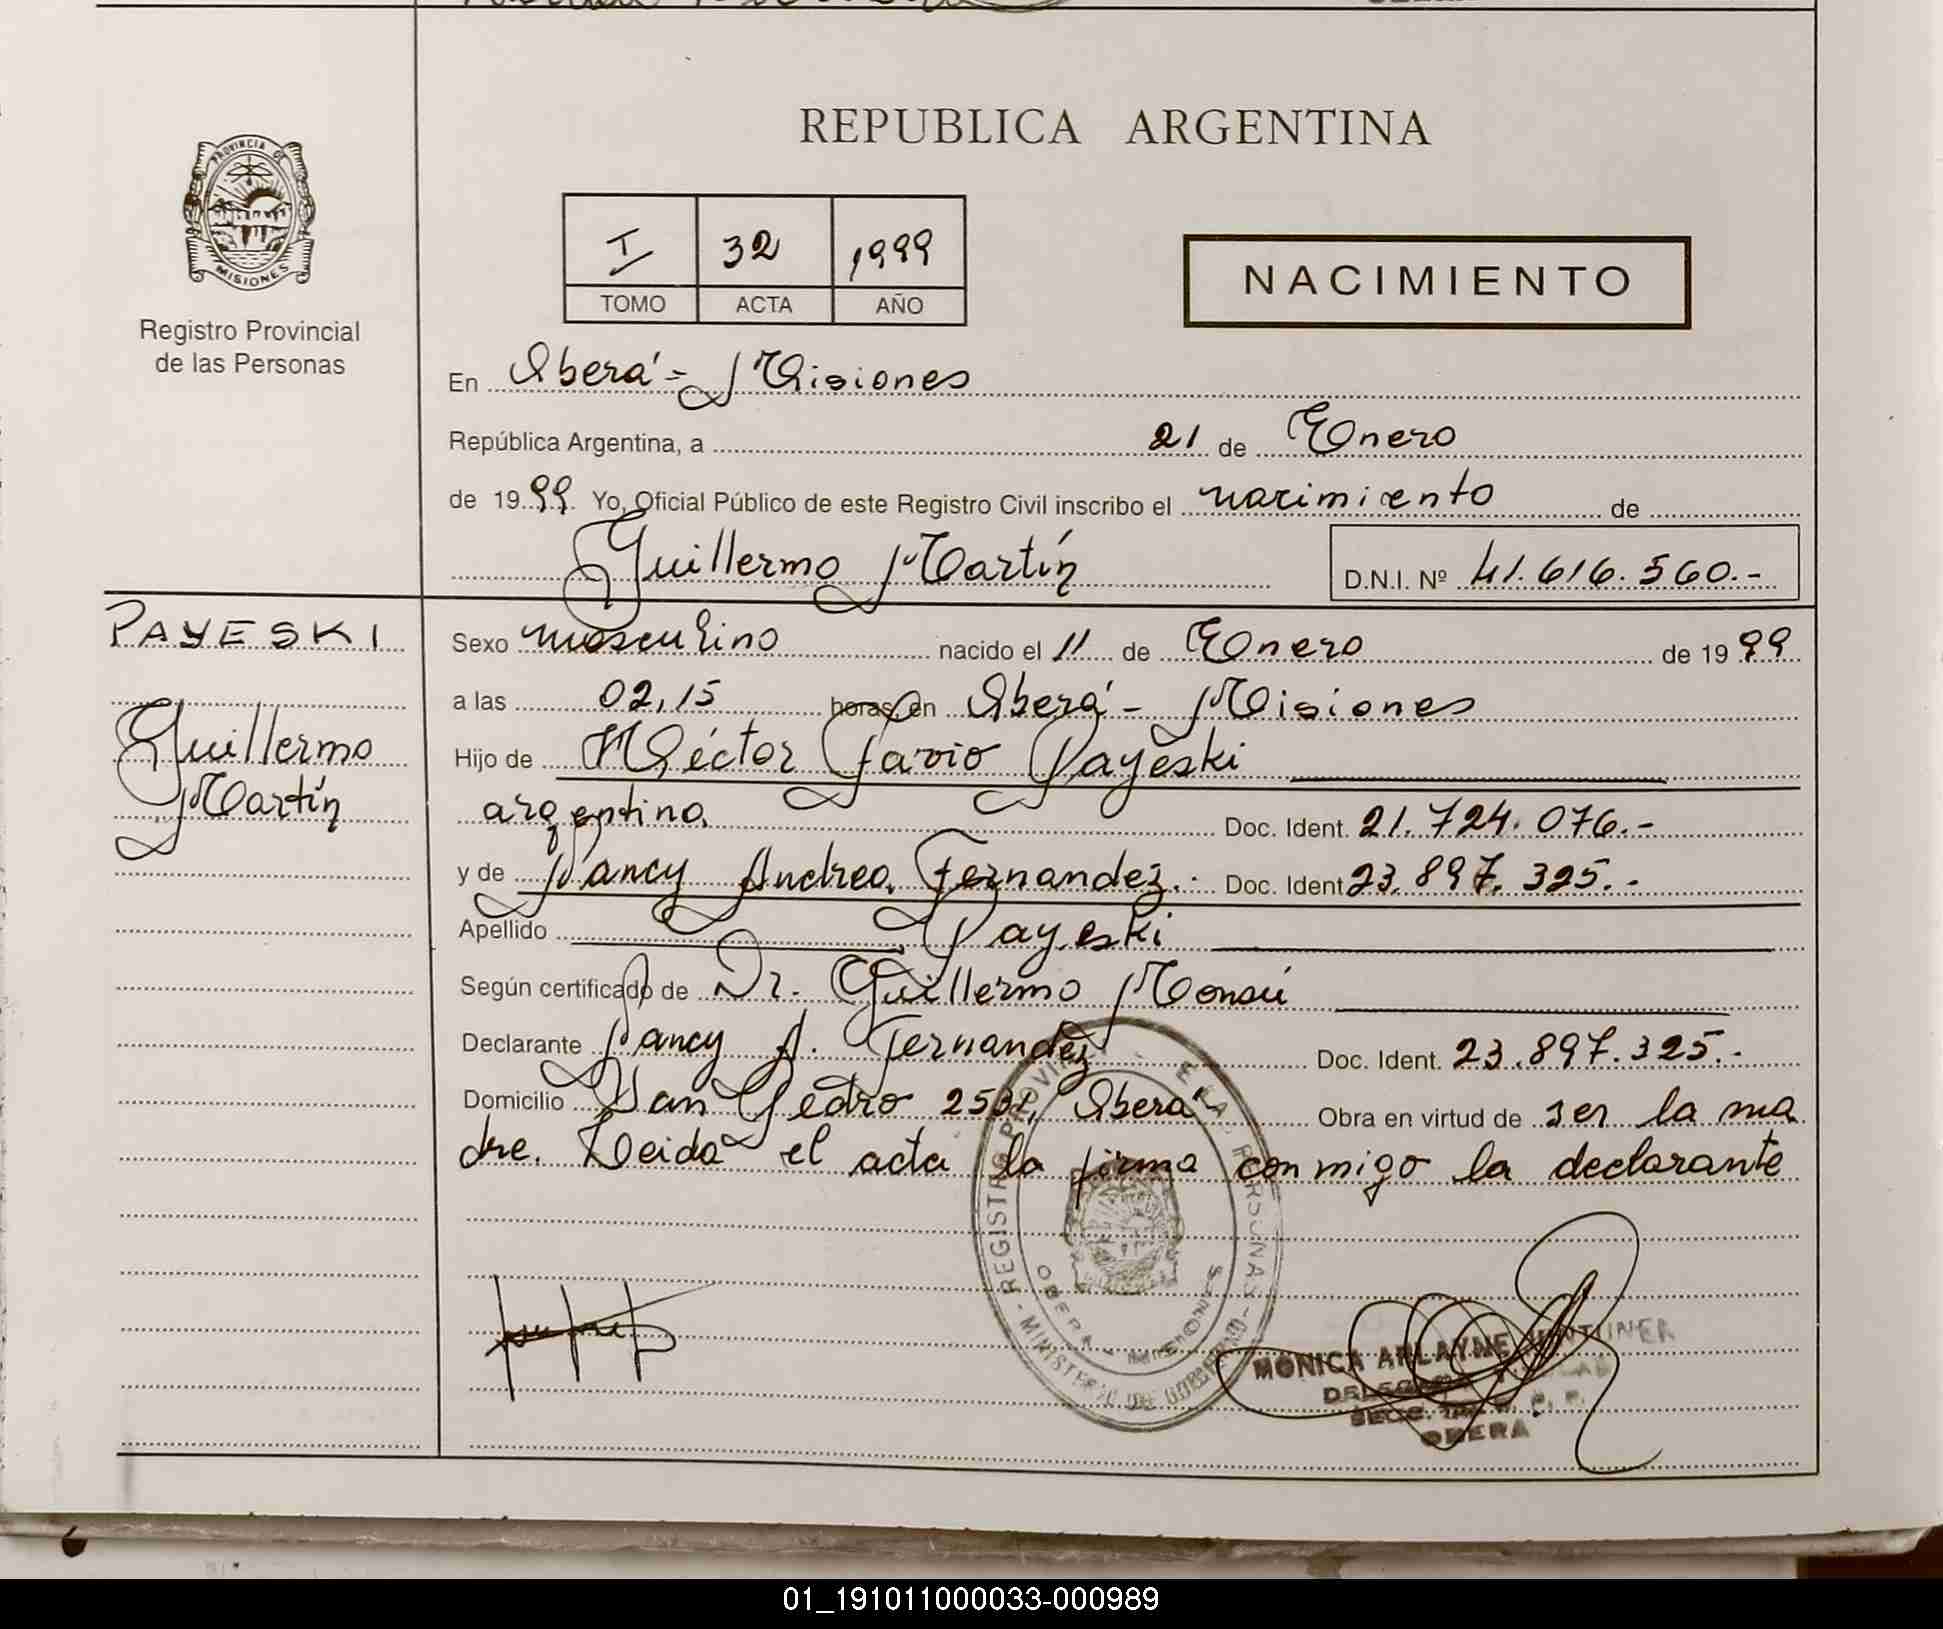 REPUBLICA ARGENTINA
PROVINCIA DE
MISIONES
Registro Provincial
de las Personas
I 32 1999
TOMO ACTA AÑO
NACIMIENTO
En Oberá - Misiones
República Argentina, a 21 de Enero
de 1999. Yo, Oficial Público de este Registro Civil inscribo el nacimiento de
Guillermo Martín
D.N.I. Nº 41.616.560.-
PAYESKI
Guillermo
Martín
Sexo masculino nacido el 11 de Enero de 1999
a las 02,15 horas en Oberá - Misiones
Hijo de Héctor Favio Payeski
argentino. Doc. Ident. 21.724.076.-
y de Nancy Andrea Fernandez.- Doc. Ident. 23.897.325.-
Apellido Payeski
Según certificado de Dr. Guillermo Monsú
Declarante Nancy A. Fernandez Doc. Ident. 23.897.325.-
Domicilio San Pedro Oberá Obra en virtud de ser la ma
dre. Leida el acta la firma conmigo la declarante
REGISTRO PROVINCIAL DE LAS PERSONAS - MINISTERIO DE GOBIERNO -
OBERA - MISIONES
MONICA ARLAYNE
OBERA
01_191011000033-000989